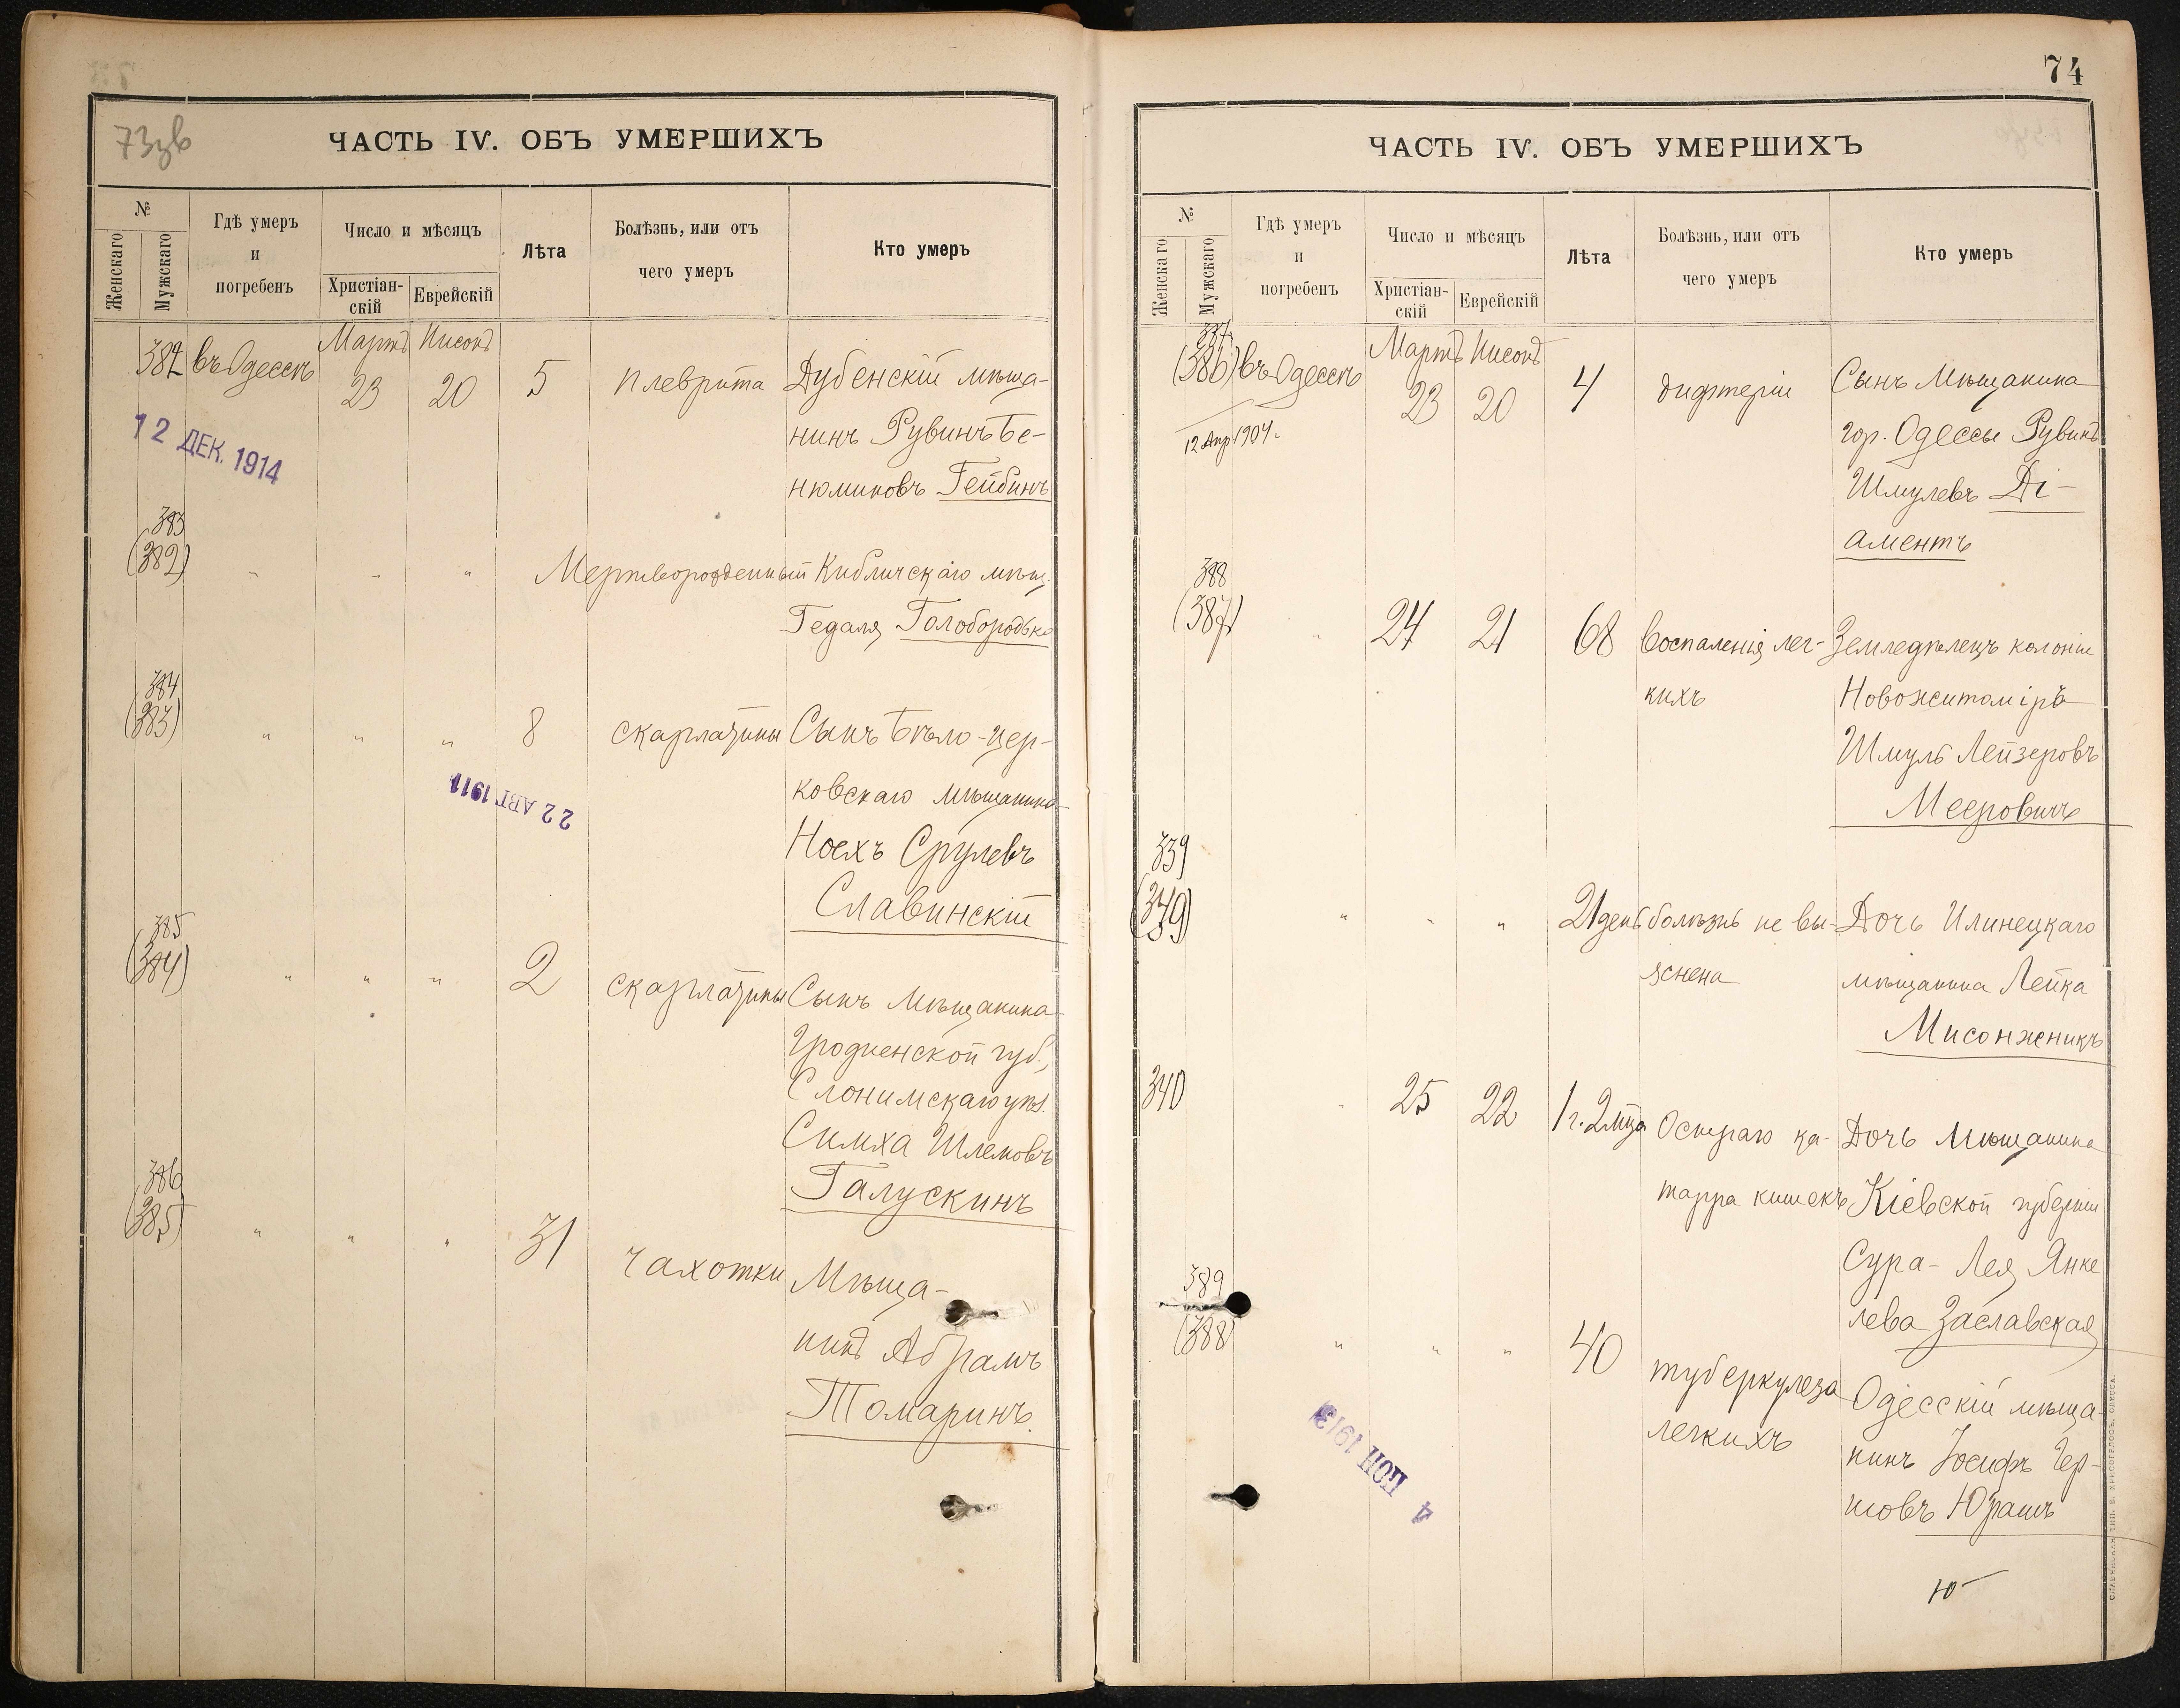 73зв
ЧАСТЬ IV. ОБЪ УМЕРШИХЪ
№
Женскаго
Мужскаго
Гдѣ умеръ
и
погребенъ
Число и мѣсяцъ
Христіан-
скій
Еврейскій
Лѣта
Болѣзнь, или отъ
чего умеръ
Кто умеръ
Мартъ Нисонъ
382 въ Одессѣ 23 20 5 плеврита Дубенскій мѣща-
нинъ Рувинъ Бе-
нюминовъ Гейбинъ
12 ДЕК. 1914
383
(382) " " " Мертворожденный Кибличскаго мѣщ.
Гедаля Голобородько
384
(383) " " " 8 скарлатины Сынъ Бѣло-цер-
ковскаго мѣщанина
Ноехъ Срулевъ
Славинскій
22 АВГ 1911
385
(384) " " " 2 скарлатины Сынъ мѣщанина
Гродненской губ.,
Слонимскаго уѣз.
Симха Шлемовъ
Галускинъ
386
(385) " " " 31 чахотки Мѣща-
нинъ Абрамъ
Томаринъ.
74
ЧАСТЬ IV. ОБЪ УМЕРШИХЪ
№
Женскаго
Мужскаго
Гдѣ умеръ
и
погребенъ
Число и мѣсяцъ
Христіан-
скій
Еврейскій
Лѣта
Болѣзнь, или отъ
чего умеръ
Кто умеръ
Мартъ Нисонъ
387
(386) въ Одессѣ 23 20 4 дифтеріи Сынъ мѣщанина
гор. Одессы Рувинъ
Шмулевъ Ді-
аментъ
12 Апр 1907.
388
(387) " 24 21 68 воспаленія лег-
кихъ
Земледѣлецъ колоніи
Новожитоміръ
Шмуль Лейзеровъ
Мееровичъ
339
(349) " " " 21 день болѣзнь не вы-
яснена
Дочь Илинецкаго
мѣщанина Лейка
Мисонжникъ
340 " 25 22 1 г. 2 мца Остраго ка-
тарра кишекъ
Дочь мѣщанина
Кіевской губерніи
Сура-Лея Янке
лева Заславская
389
(388) " " " 40 туберкулеза
легкихъ
Одесскій мѣща-
нинъ Іосифъ Гер-
шовъ Юрашъ
4 ІЮН 1913
Ю